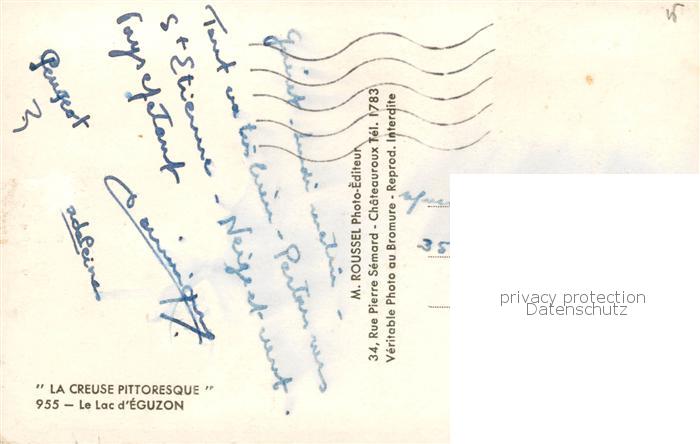 Guéret - Lundi matin -
Tout va très bien - Partons vers
St Etienne - Neige et vent.
Pays épatant
Peugeot
M. ROUSSEL Photo-Éditeur
34, Rue Pierre Sémard - Châteauroux Tél. 1783
Véritable Photo au Bromure - Reprod. Interdite
35
privacy protection
Datenschutz
" LA CREUSE PITTORESQUE "
955 — Le Lac d'ÉGUZON